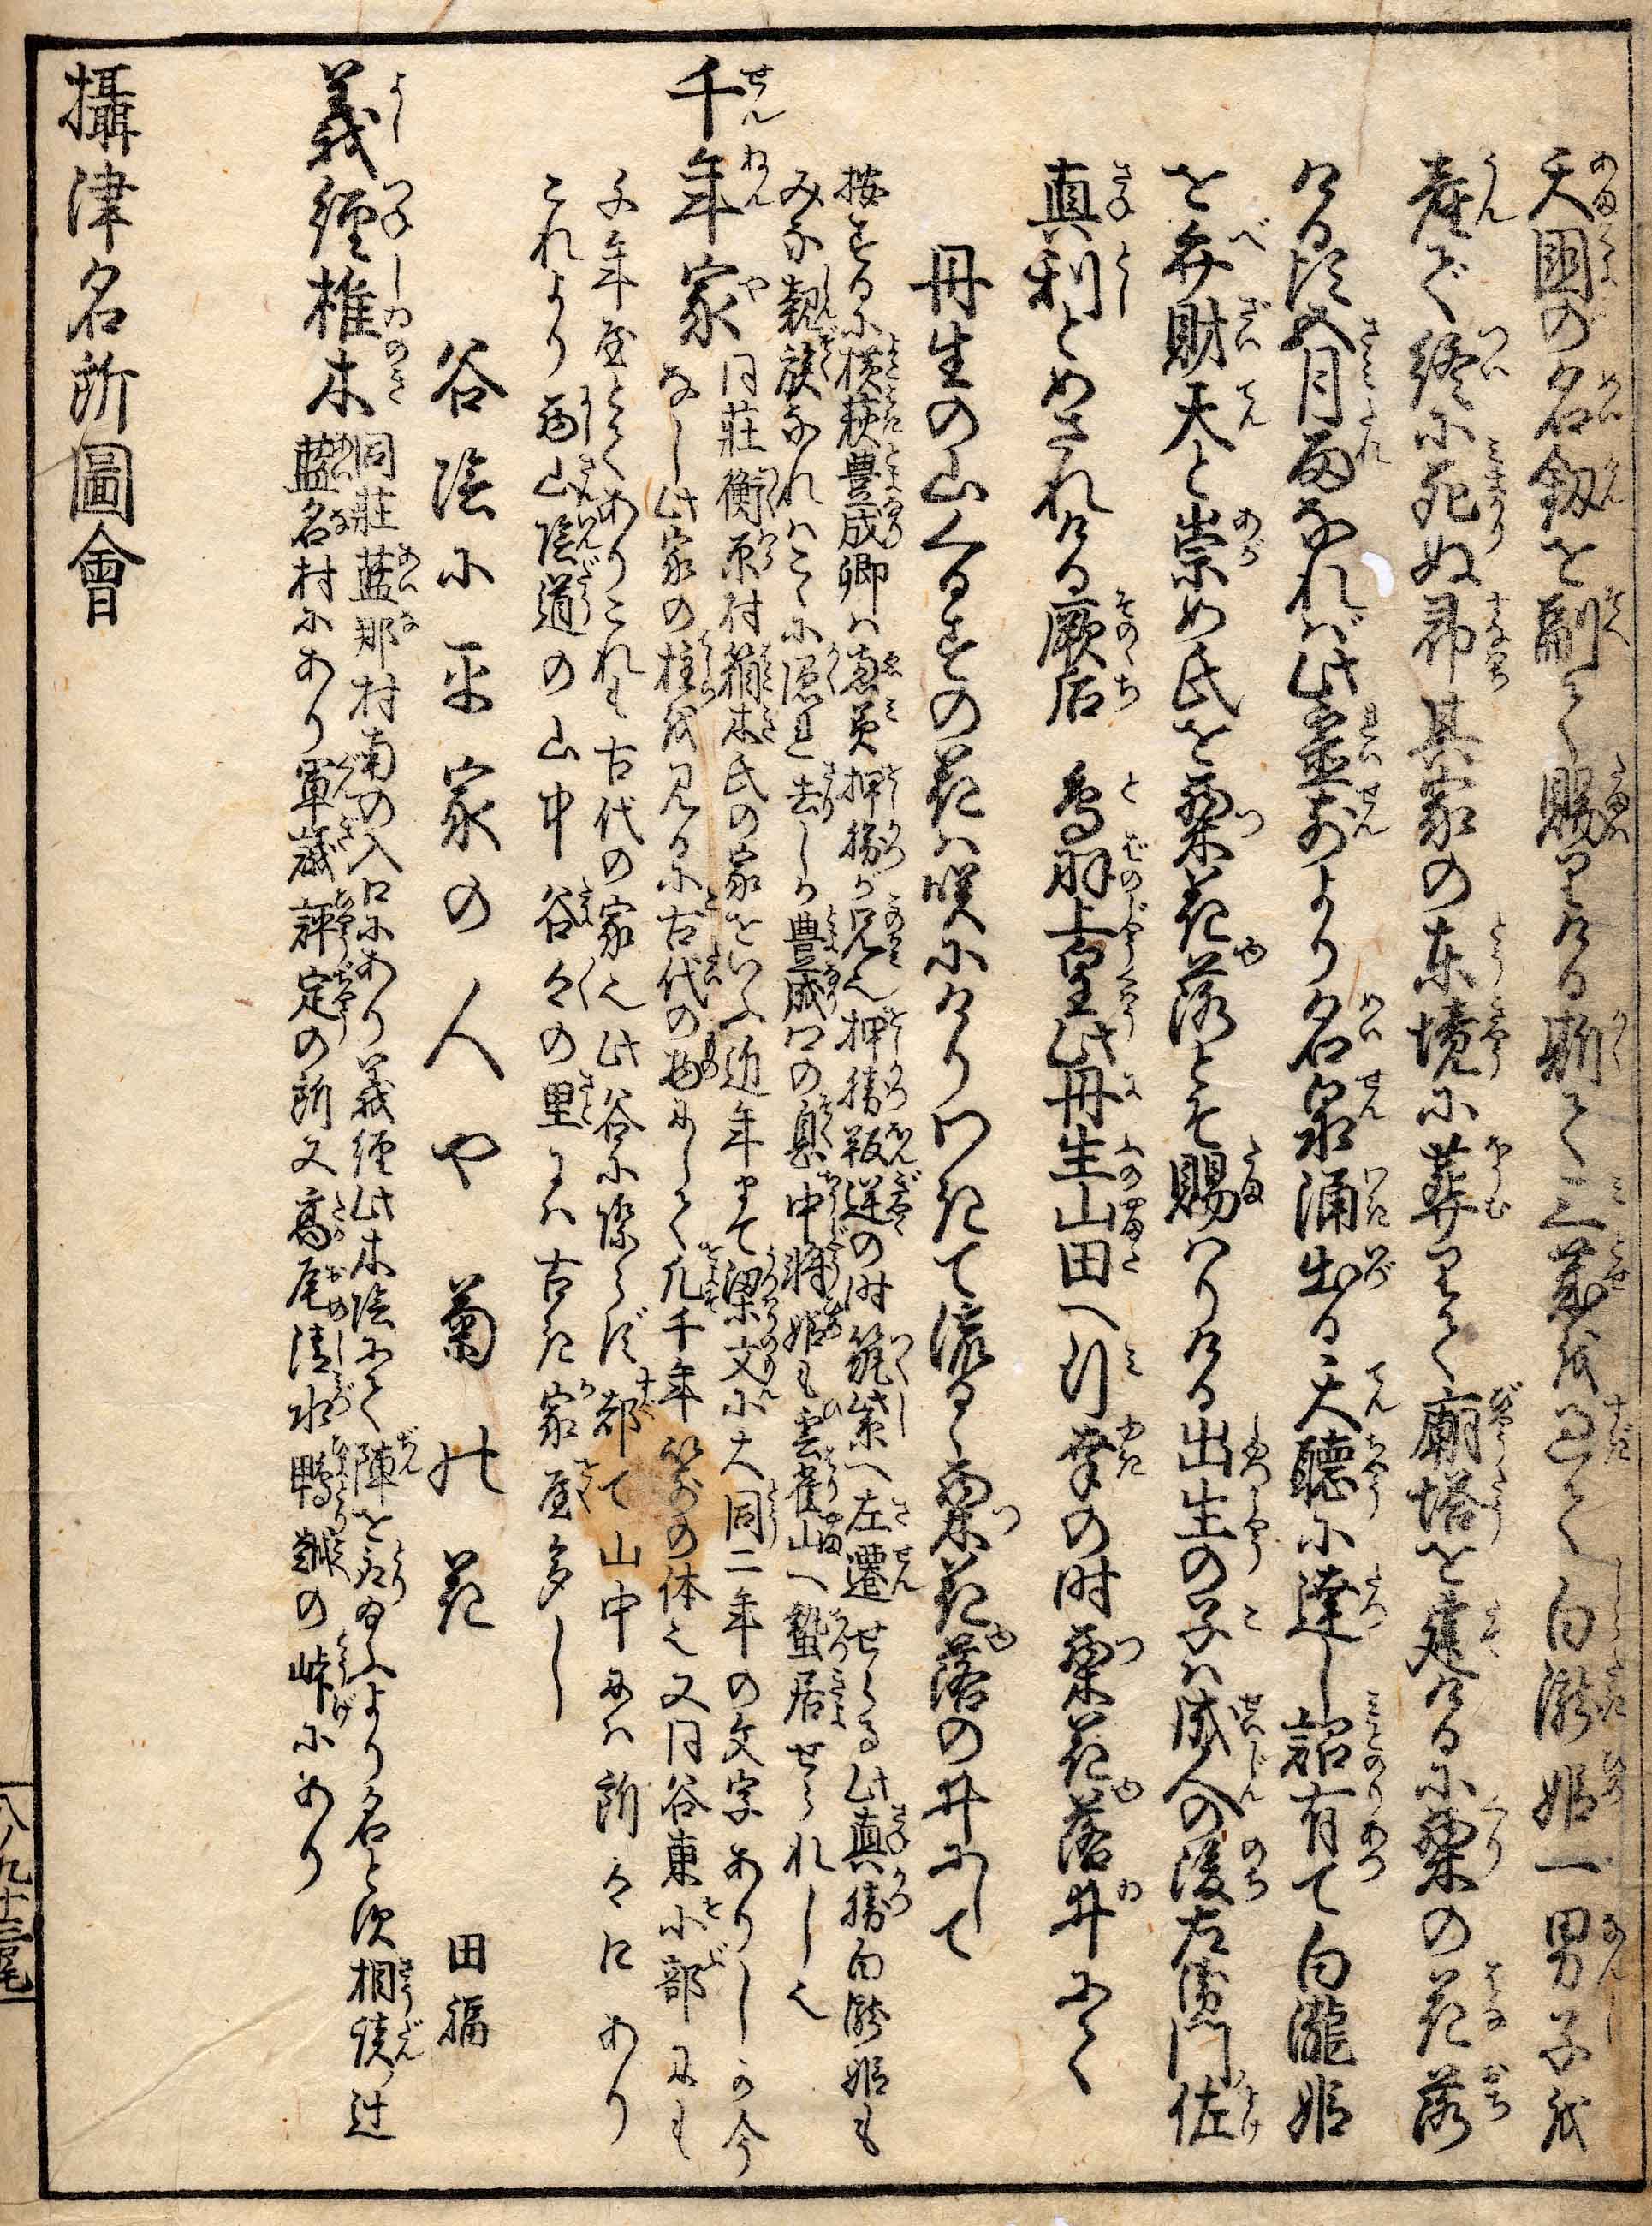 天國の名釼を副て賜りける斯て三歳を過て白瀧姫一男子を
産で終に死ぬ即其家の東境に葬りて廟塔を建けるに栗の花落
ける頃五月雨なれば此霊前より名泉涌出る天聴に達し詔有て白瀧姫
を弁財天と崇め氏を栗花落とぞ賜はりける出生の子は成人の後左衛門佐
真利とめされける厥后鳥羽上皇此丹生山田へ行幸の時栗花落井にて
丹生の山くるすの花は咲にけりわきて流るゝ栗花落の井にして
按ずるに横萩豊成卿は恵美押勝が兄也押勝叛逆の時筑紫へ左遷せらる此真勝白瀧姫も
みな親族なればこゝに隠れ去しか豊成卿の息中将姫も雲雀山へ蟄居せられし也
千年家 同荘衝原村箱木氏の家をいふ近年まで梁文に大同二年の文字ありしが今
なし此家の柱を見るに古代の物にして凡千年前の体也又同谷東小部にも
千年屋とてありこれも古代の家也此谷に際らず都て山中には所々にあり
これより西山陰道の山中谷々の里には古き家屋多し
谷陰に平家の人や菊の花 田福
義經椎木 同荘藍那村南の入口にあり義經此木陰にて陣を取給ふより名とす相談辻
藍名村にあり軍議評定の所又高尾清水鴨越の峠にあり
攝津名所圖會
八ノ九十三尾